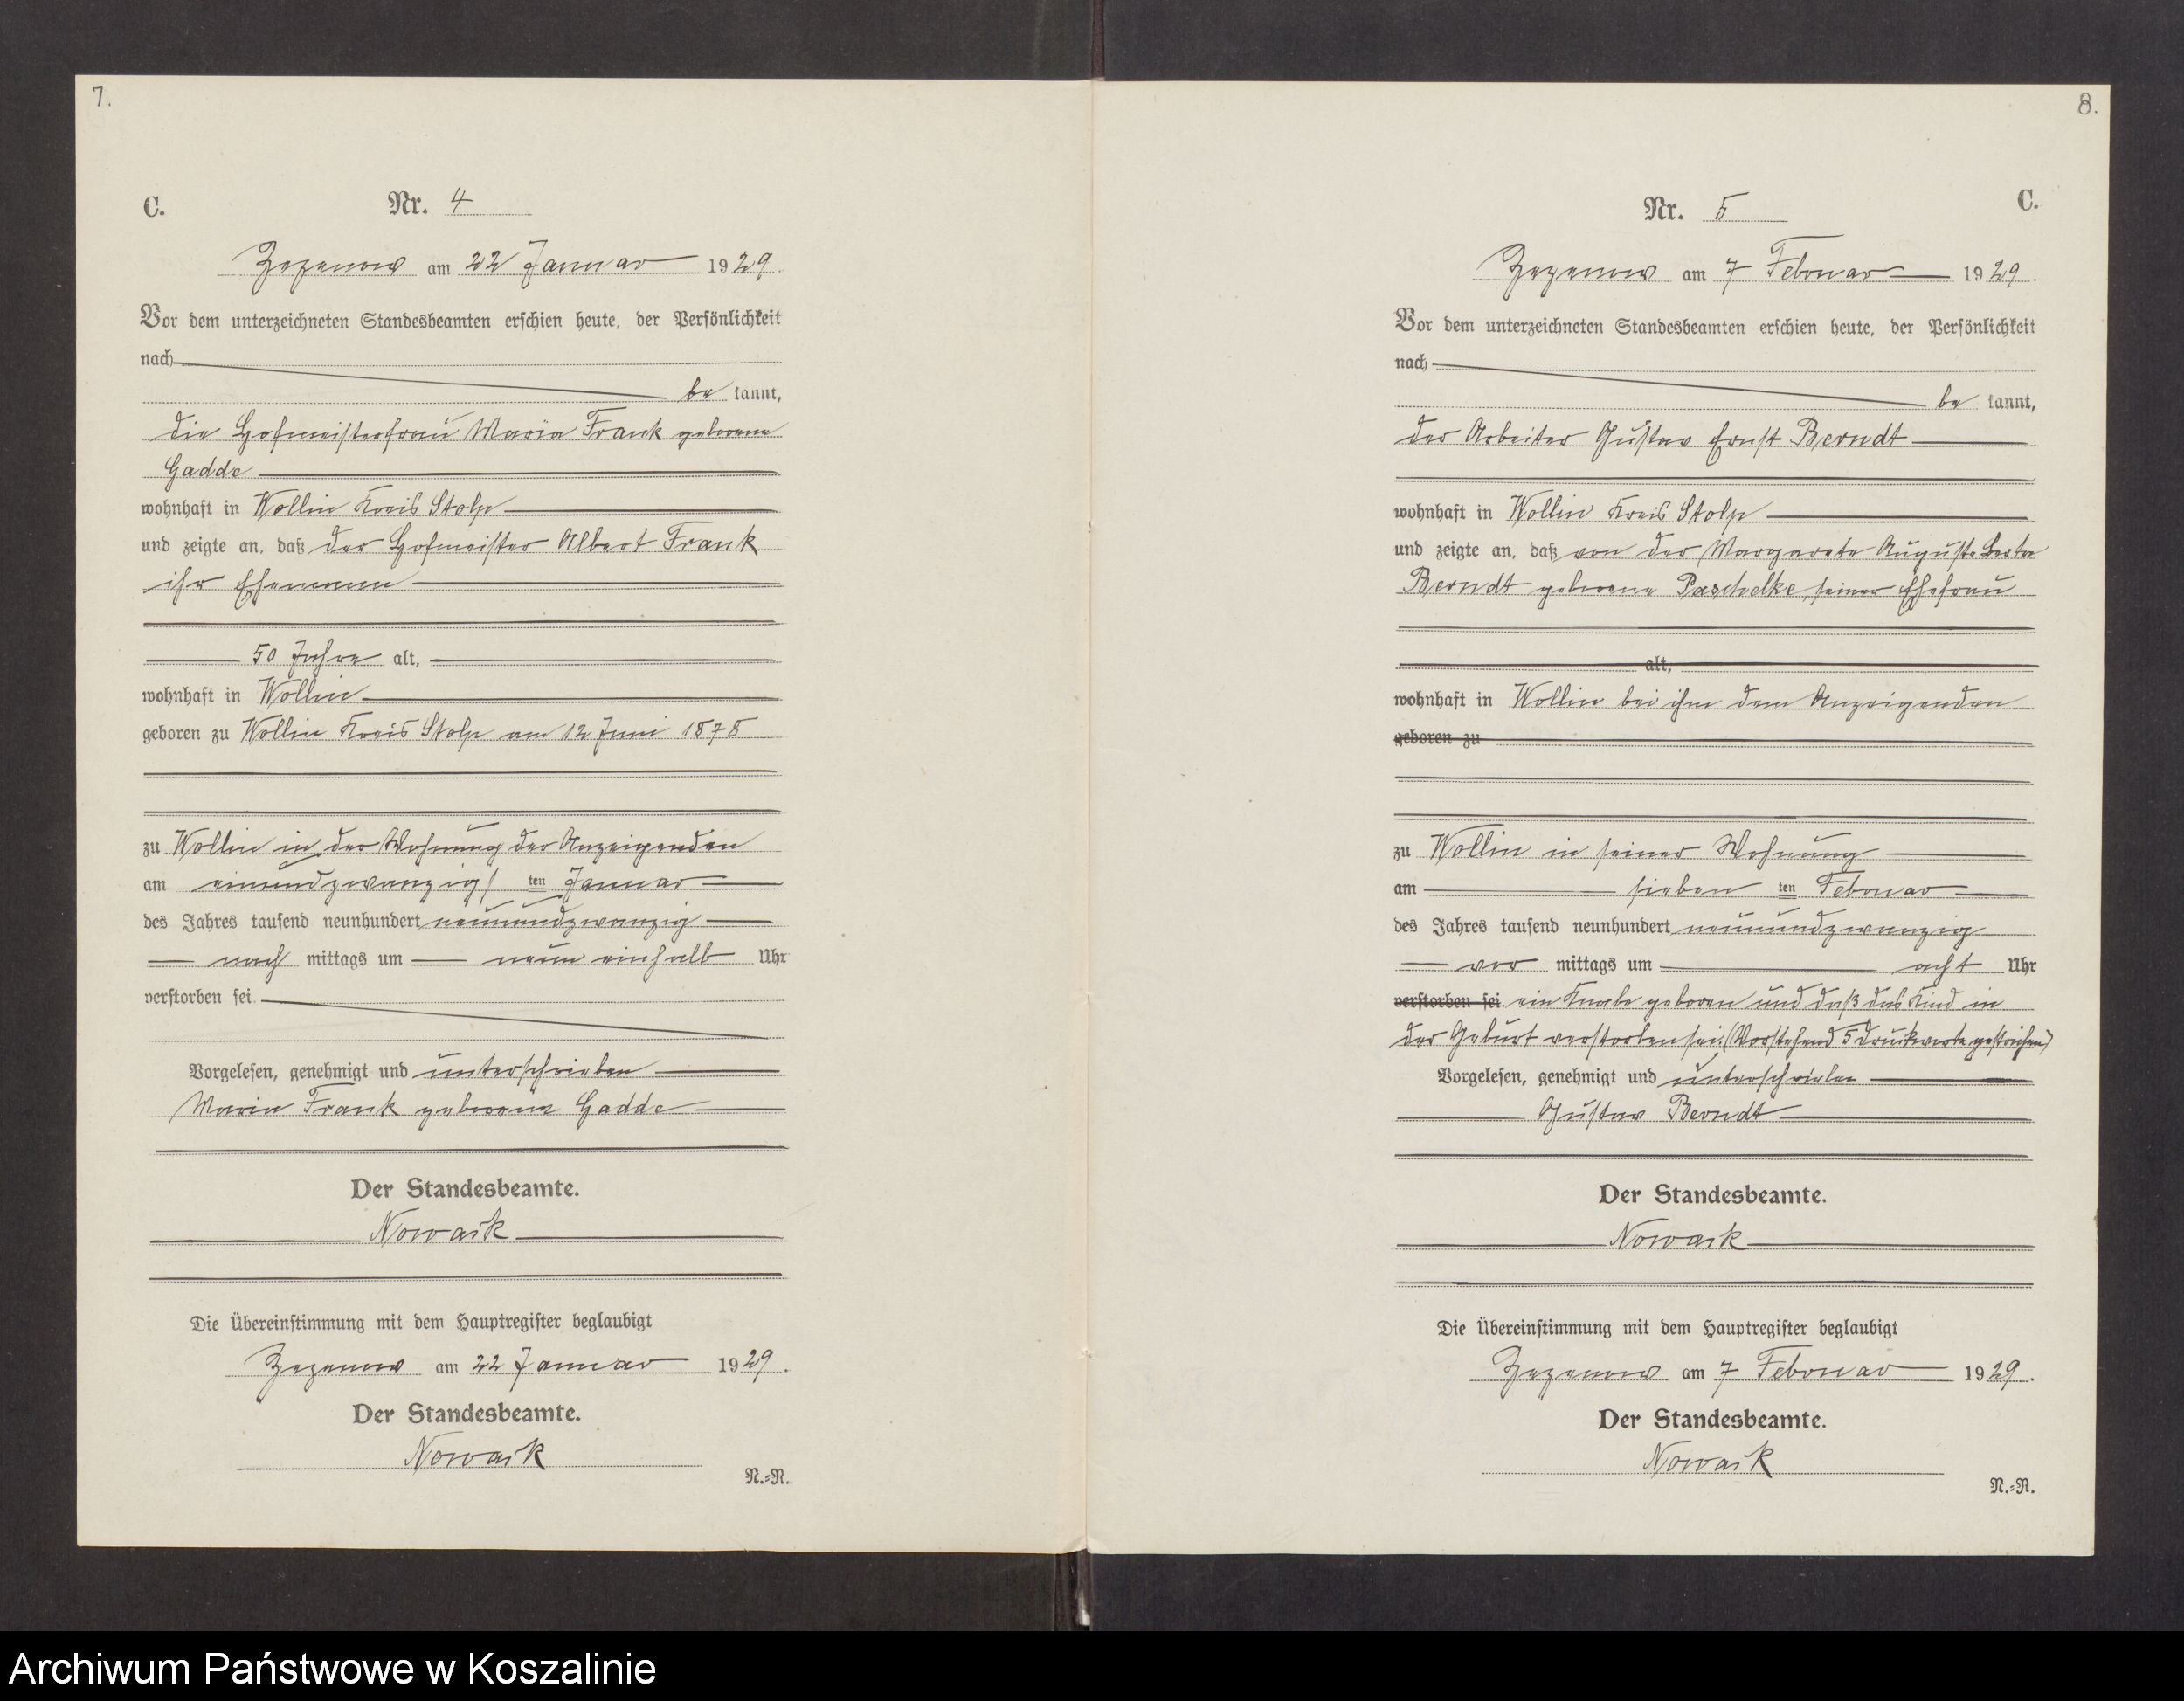 7.
C.
Nr. 4
Zezenow am 22 Januar 1929.
Vor dem unterzeichneten Standesbeamten erschien heute, der Persönlichkeit
nach
be kannt,
die Hofmeisterfrau Maria Frank geborene
Gadde
wohnhaft in Wollin Kreis Stolp
und zeigte an, daß der Hofmeister Albert Frank
ihr Ehemann
50 Jahre alt,
wohnhaft in Wollin
geboren zu Wollin Kreis Stolp am 12 Juni 1878
zu Wollin in der Wohnung der Anzeigenden
am einundzwanzig ten Januar
des Jahres tausend neunhundert neunundzwanzig
nach mittags um neun einhalb Uhr
verstorben sei.
Vorgelesen, genehmigt und unterschrieben
Maria Frank geborene Gadde
Der Standesbeamte.
Nowack
Die Übereinstimmung mit dem Hauptregister beglaubigt
Zezenow am 22 Januar 1929.
Der Standesbeamte.
Nowack
N.=R.
8.
C.
Nr. 5
Zezenow am 7 Februar 1929.
Vor dem unterzeichneten Standesbeamten erschien heute, der Persönlichkeit
nach
be kannt,
der Arbeiter Gustav Ernst Berndt
wohnhaft in Wollin Kreis Stolp
und zeigte an, daß von der Margarete Auguste Berta
Berndt geborene Paschelke, seiner Ehefrau
alt,
wohnhaft in Wollin bei ihm dem Anzeigenden
geboren zu
zu Wollin in seiner Wohnung
am sieben ten Februar
des Jahres tausend neunhundert neunundzwanzig
vor mittags um acht Uhr
verstorben sei. ein Knabe geboren und daß das Kind in
der Geburt verstorben sei. (Vorstehend 5 Druckworte gestrichen)
Vorgelesen, genehmigt und unterschrieben
Gustav Berndt
Der Standesbeamte.
Nowack
Die Übereinstimmung mit dem Hauptregister beglaubigt
Zezenow am 7 Februar 1929.
Der Standesbeamte.
Nowack
N.=R.
Archiwum Państwowe w Koszalinie